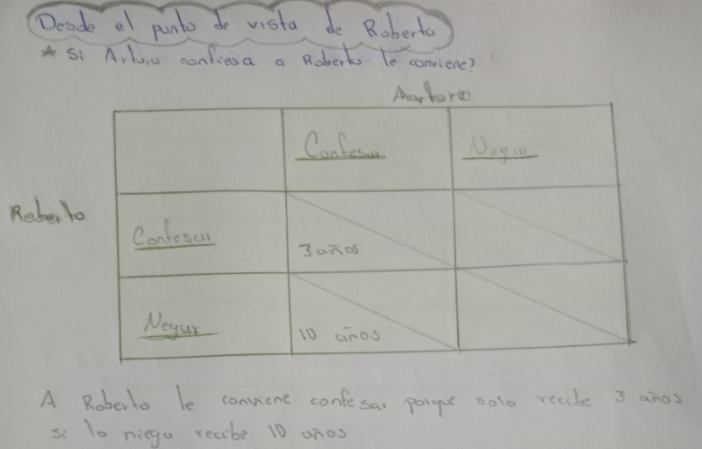 Desde el punto de vista de Roberto
* Si Arturo confiesa a Roberto le conviene?
Arturo
Confesar
Negar
Roberto
Confesar
3 años
Negar
10 años
A Roberto le conviene confesar porque solo recibe 3 años
si lo niega recibe 10 años